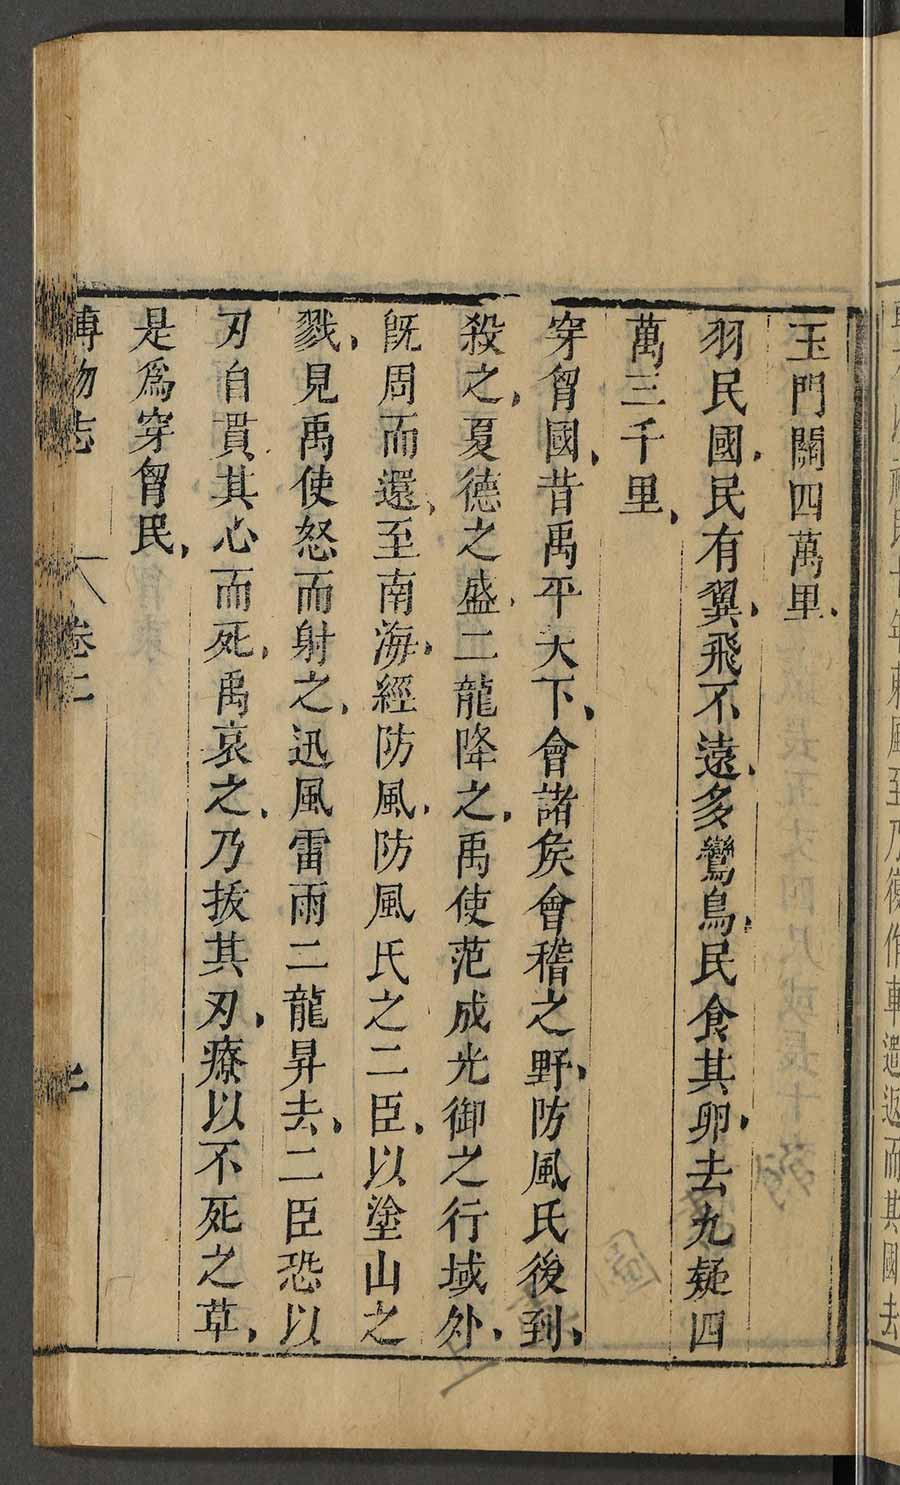 玉門關四萬里、
羽民國、民有翼、飛不遠、多鸞鳥、民食其卵、去九疑四
萬三千里、
穿胷國、昔禹平天下、會諸矦會稽之野、防風氏後到、
殺之、夏德之盛、二龍降之、禹使范成光御之行域外、
旣周而還、至南海、經防風、防風氏之二臣、以塗山之
戮、見禹使怒而射之、迅風雷雨二龍昇去、二臣恐以
刃自貫其心而死、禹哀之、乃拔其刃、療以不死之草、
是爲穿胷民、
博物志 卷二